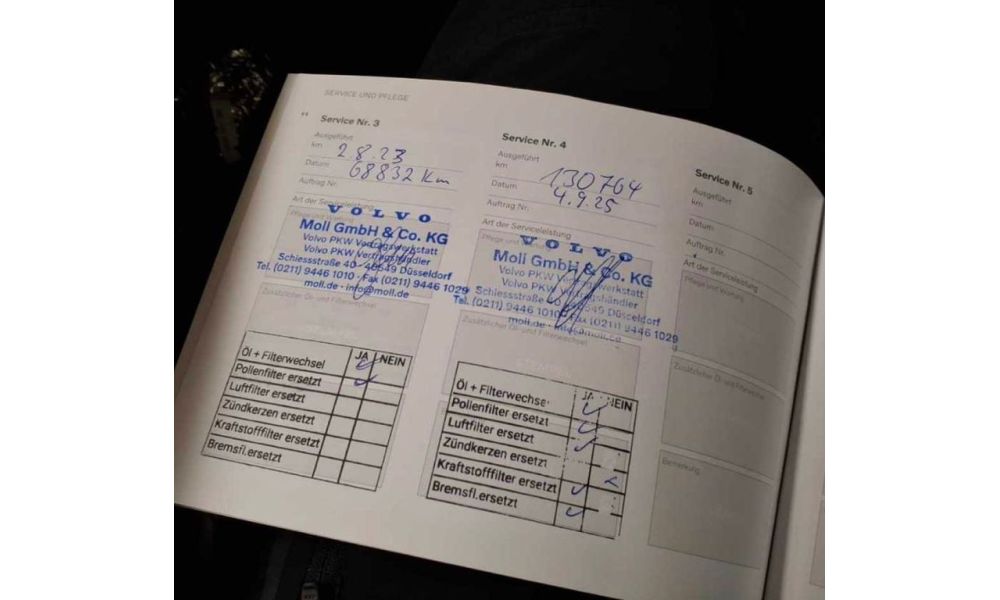 SERVICE UND PFLEGE
Service Nr. 3
Ausgeführt
km 2.8.23
Datum 68832 Km
Auftrag Nr.
Art der Serviceleistung
Pflege und Wartung
VOLVO
Moll GmbH & Co. KG
Volvo PKW Vertragswerkstatt
Volvo PKW Vertragshändler
Schiessstraße 40 · 40549 Düsseldorf
Tel. (0211) 9446 1010 · Fax (0211) 9446 1029
moll.de · info@moll.de
Zusätzlicher Öl- und Filterwechsel
JA NEIN
Öl + Filterwechsel ✓
Pollenfilter ersetzt ✓
Luftfilter ersetzt
Zündkerzen ersetzt
Kraftstofffilter ersetzt
Bremsfl.ersetzt
Service Nr. 4
Ausgeführt
km 130764
Datum 4.9.25
Auftrag Nr.
Art der Serviceleistung
Pflege und
VOLVO
Moll GmbH & Co. KG
Volvo PKW Vertragswerkstatt
Volvo PKW Vertragshändler
Schiessstraße 40 · 40549 Düsseldorf
Tel. (0211) 9446 1010 · Fax (0211) 9446 1029
moll.de · info@moll.de
Zusätzlicher Öl- und Filterwechsel
JA NEIN
Öl + Filterwechsel ✓
Pollenfilter ersetzt ✓
Luftfilter ersetzt ✓
Zündkerzen ersetzt
Kraftstofffilter ersetzt ✓
Bremsfl.ersetzt ✓
Service Nr. 5
Ausgeführt
km
Datum
Auftrag Nr.
Art der Serviceleistung
Pflege und Wartung
Zusätzlicher Öl- und Filterwechsel
Bemerkung